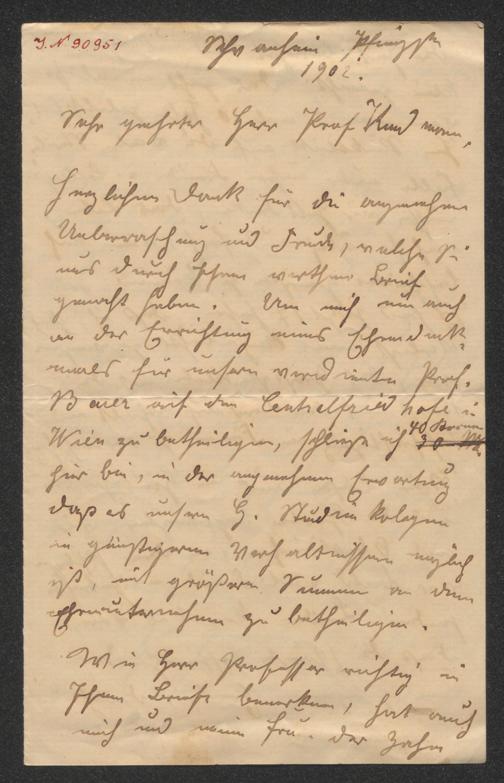 J. N 90951
Schwanheim Pfingsten
1902.
Sehr geehrter Herr Prof Kundmann,
Herzlichen Dank für die angenehme
Ueberraschung und Freude, welche Sie
uns durch Ihren werthen Brief
gemacht haben. Um mich nun auch
an der Errichtung eines Ehrendenk-
mals für unsern verdienten Prof.
Bauer auf dem Centralfriedhofe in
Wien zu betheiligen, schließe ich 40 Kronen
hier bei, in der angenehmen Erwartung
daß es unsern H. Studienkolegen
in günstigeren Verhältnissen möglich
ist, mit größeren Summen an dem
Ehrenunternehmen zu betheiligen.
Wie Herr Professor richtig in
Ihrem Briefe bemerken, hat auch
mich und meine Frau der Zahn